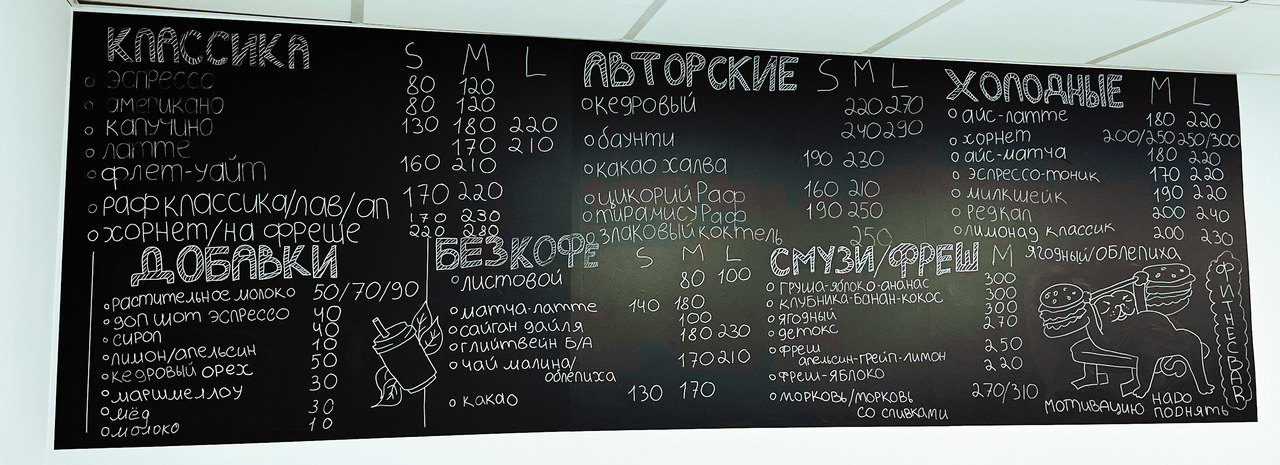 КЛАССИКА S M L
эспрессо 80 120
американо 80 120
капучино 130 180 220
латте 170 210
флет-уайт 160 210
раф классика/лав/ап 170 220
170 230
хорнет/на фреше 220 280
АВТОРСКИЕ S M L
кедровый 220 270
баунти 240 290
какао халва 190 230
цикорий Раф 160 210
тирамису Раф 190 250
злаковый коктель 250
ХОЛОДНЫЕ M L
айс-латте 180 220
хорнет 200/250 250/300
айс-матча 180 220
эспрессо-тоник 170 220
милкшейк 190 220
редкап 200 240
лимонад классик 200 230
ягодный/облепиха
ДОБАВКИ
растительное молоко 50/70/90
доп шот эспрессо 40
сироп 40
лимон/апельсин 10
кедровый орех 50
маршмеллоу 30
мёд 30
молоко 10
БЕЗ КОФЕ S M L
листовой 80 100
матча-латте 140 180
сайган дайля 100
глийтвейн Б/А 180 230
чай малина/ 170 210
облепиха
какао 130 170
СМУЗИ/ФРЕШ M
груша-яблоко-ананас 300
клубника-банан-кокос 300
ягодный 300
детокс 270
фреш 250
апельсин-грейп-лимон
фреш-яблоко 220
морковь/морковь 270/310
со сливками
ФИТНЕС BAR
мотивацию надо
поднять